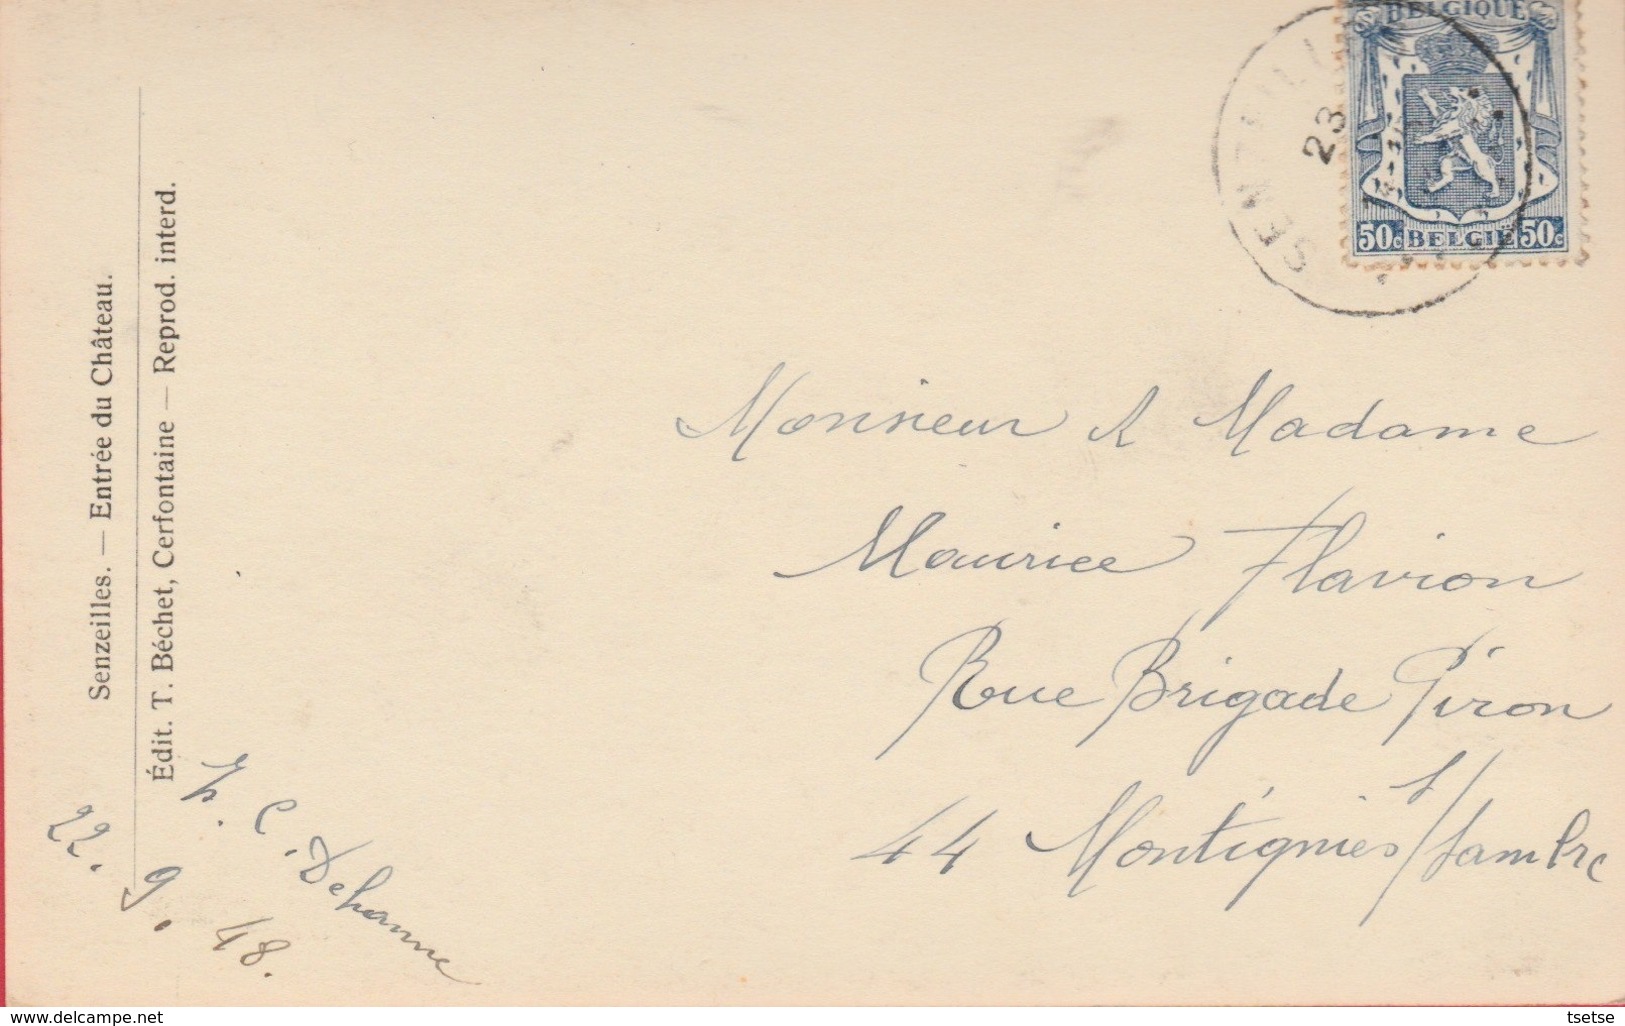 BELGIQUE
SENZEILLE
23
50c BELGIË 50c
Monsieur & Madame
Maurice Flavion
Rue Brigade Piron
44 Montignies s/Sambre
Senzeilles. — Entrée du Château.
Édit. T. Béchet, Cerfontaine — Reprod. interd.
C. Dehanne
22. 9. 48.
www.delcampe.net
tsetse